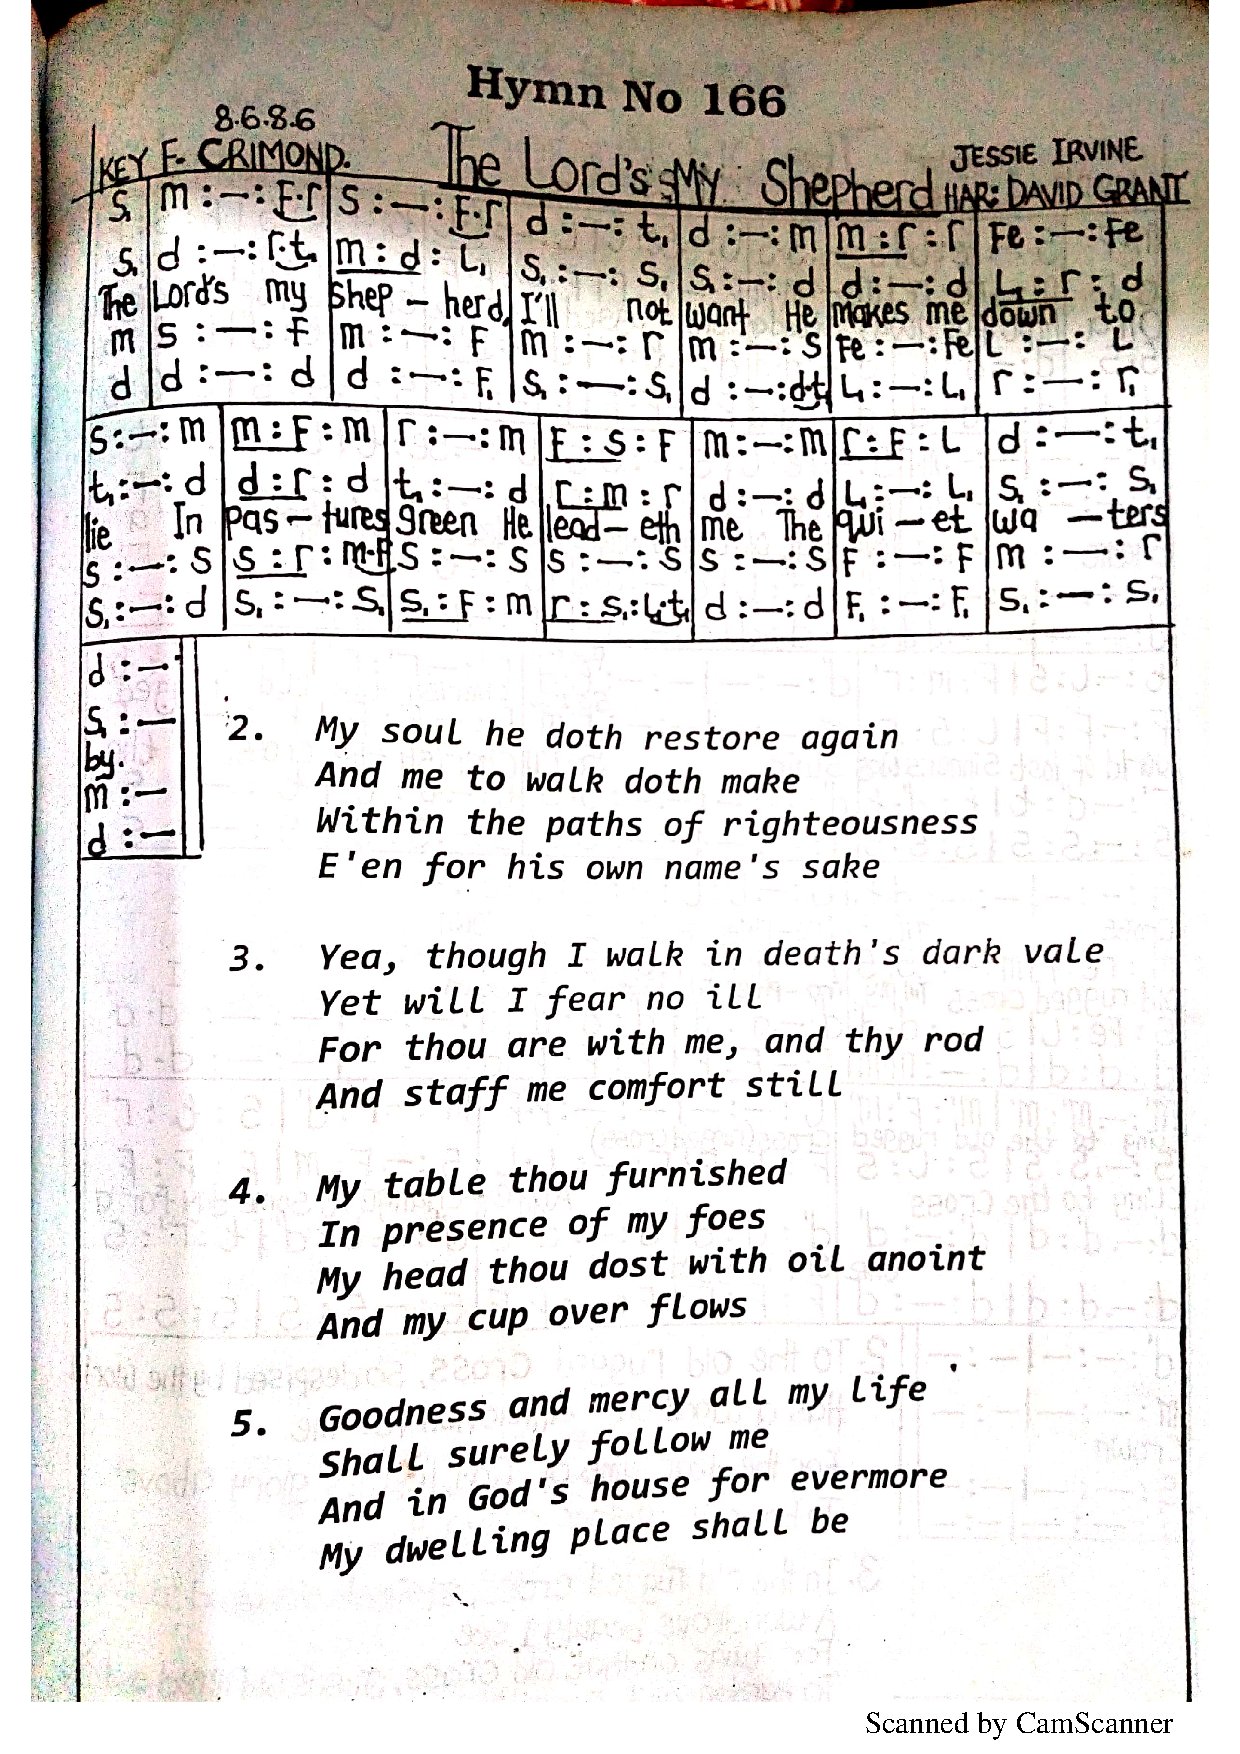 Hymn No 166
8.6.8.6
KEY F. CRIMOND.
The Lord's My Shepherd
JESSIE IRVINE
HAR: DAVID GRANT
s, | m :—: f.r | s :—: f.r | d :—: t, | d :—: m | m : r : r | fe :—: fe
s, | d :—: r.t, | m : d : l, | s, :—: s, | s, :—: d | d :—: d | l, : r : d
The | Lord's my | shep – herd, | I'll not | want He | makes me | down to
m | s :—: f | m :—: f | m :—: r | m :—: s | fe :—: fe | l :—: l
d | d :—: d | d :—: f, | s, :—: s, | d :—: d.t, | l, :—: l, | r :—: r,
s :—: m | m : f : m | r :—: m | f : s : f | m :—: m | r : f : l | d :—: t,
t, :—: d | d : r : d | t, :—: d | r : m : r | d :—: d | l, :—: l, | s, :—: s,
lie In | pas – tures | green He | lead – eth | me The | qui – et | wa – ters
s :—: s | s : r : m.f | s :—: s | s :—: s | s :—: s | f :—: f | m :—: r
s, :—: d | s, :—: s, | s, : f : m | r : s, : l,.t, | d :—: d | f, :—: f, | s, :—: s,
d :—
s, :—
by.
m :—
d :—
2. My soul he doth restore again
And me to walk doth make
Within the paths of righteousness
E'en for his own name's sake
3. Yea, though I walk in death's dark vale
Yet will I fear no ill
For thou are with me, and thy rod
And staff me comfort still
4. My table thou furnished
In presence of my foes
My head thou dost with oil anoint
And my cup over flows
5. Goodness and mercy all my life
Shall surely follow me
And in God's house for evermore
My dwelling place shall be
Scanned by CamScanner